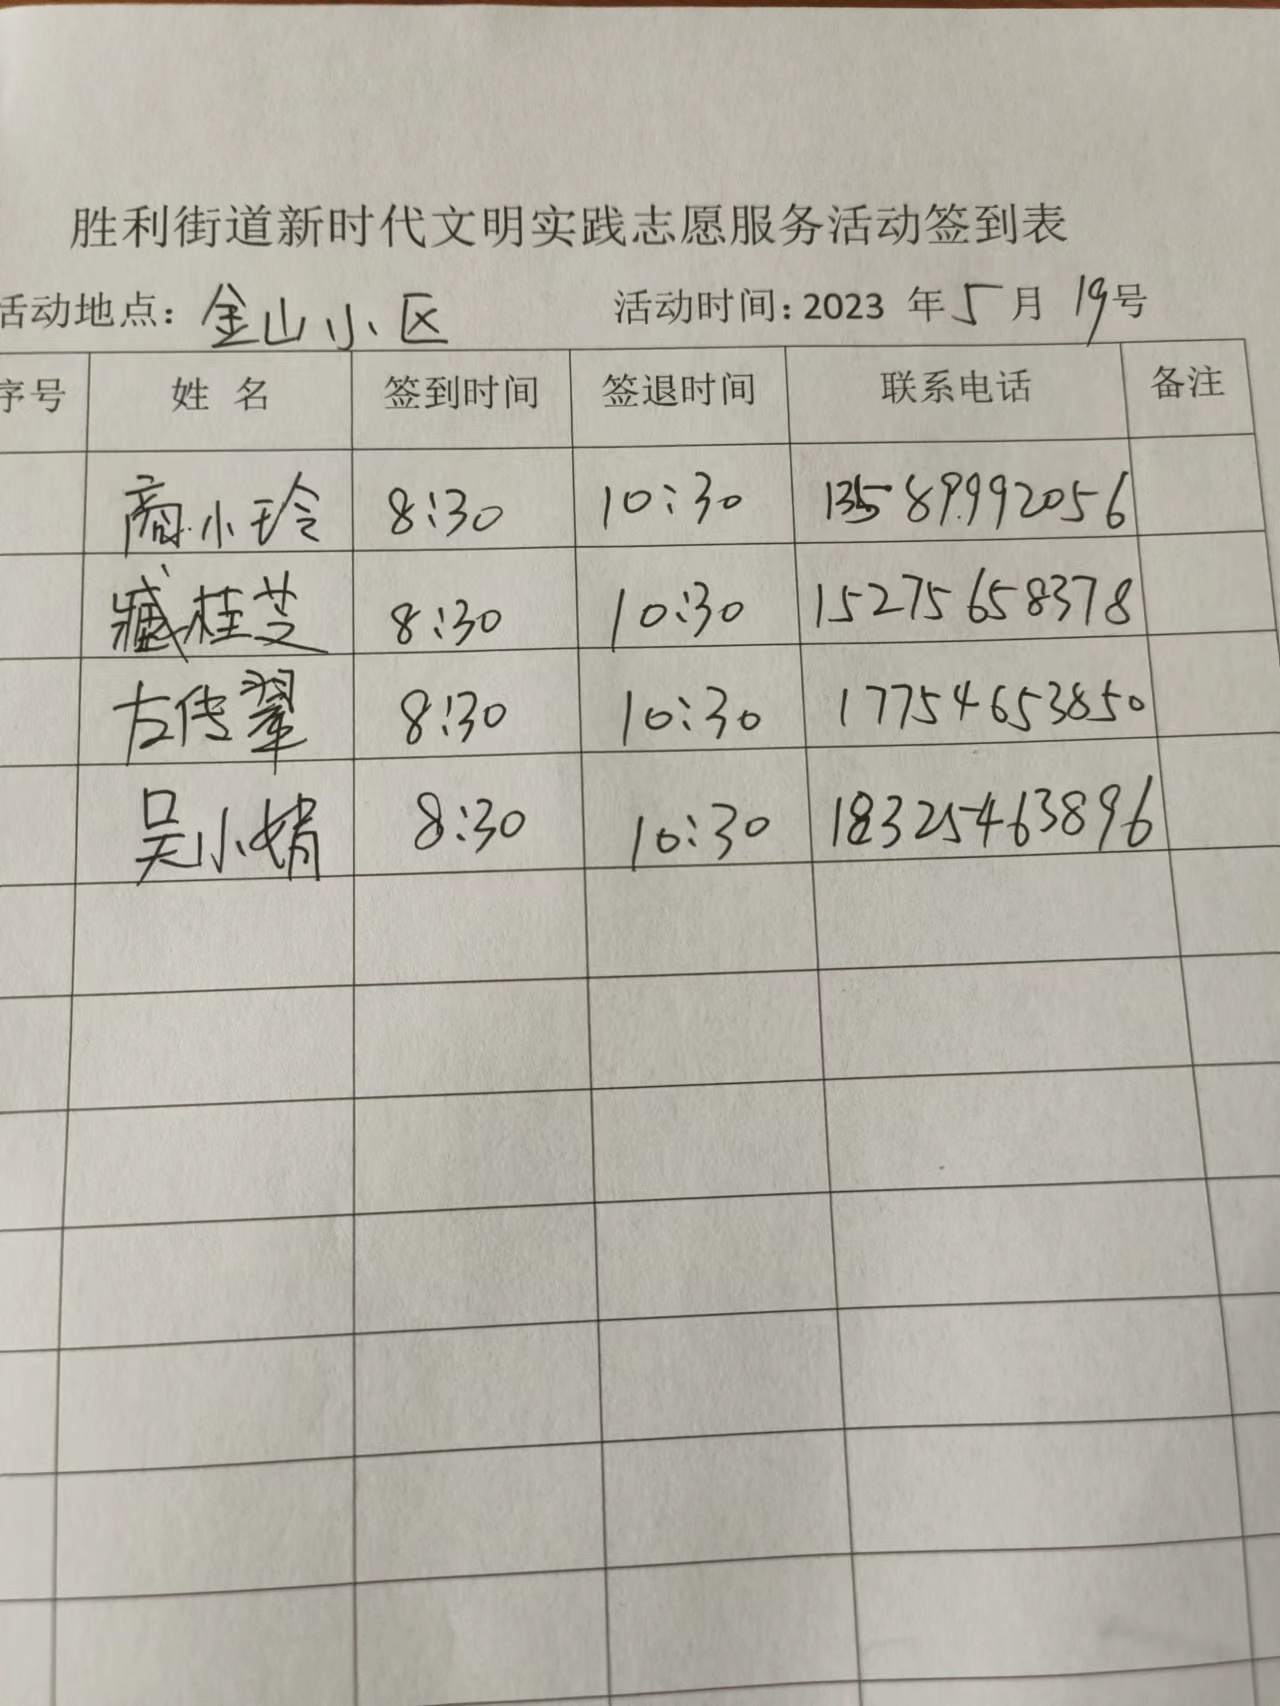 胜利街道新时代文明实践志愿服务活动签到表
活动地点：金山小区 活动时间：2023 年 5 月 19 号
序号 姓 名 签到时间 签退时间 联系电话 备注
商小玲 8:30 10:30 13589992056
臧桂芝 8:30 10:30 15275658378
左传翠 8:30 10:30 17754653850
吴小娟 8:30 10:30 18325463896